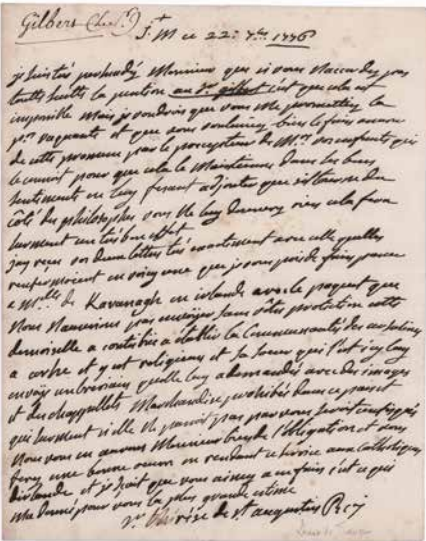 Gilbert (le Sr.)
J. + M ce 22e 7bre 1776
je suis très persuadé Monsieur que si vous n'accordez pas
toutte suitte la pention au Sr. gilbert c'est que cela est
imposible Mais je voudrois que vous me promettiez la
pre. vaquante et que vous voulussiez bien le faire assurer
de cette promesse par le precepteur de Mrs. vos enfants qui
le connoit pour que cela le Maintienne dans les bons
sentiments en luy fesant adjouter que s'il tourne du
côté des philosophes vous ne luy donnerez rien cela fera
surement un très bon effet
jay reçu vos deux lettres très exactement avec celle quelles
renfermoient en voicy une que je vous prie de faire passer
a Mlle. de Kavanagh en irlande avec le paquet que
Nous n'aurions pas envoyer sans vôtre protection cette
demoiselle a contribué a établir la Communauté des ursulines
a corke et y est religieuse et sa soeur qui l'est icy luy
envoÿe un breviaire quelle luy a demandé avec des images
et des chappellets Marchandise prohibés dans ce païs et
qui surement si elle ne passoit pas par vous seroit confisqués
Nous vous en aurons Monsieur bien de l'obligation et vous
ferez une bonne oeuvre en rendant ce service aux Catholiques
d'irlande et je sçait que vous aimez a en faire c'est ce qui
me donne pour vous la plus grande estime
Sr. thérése de St augustin R C i